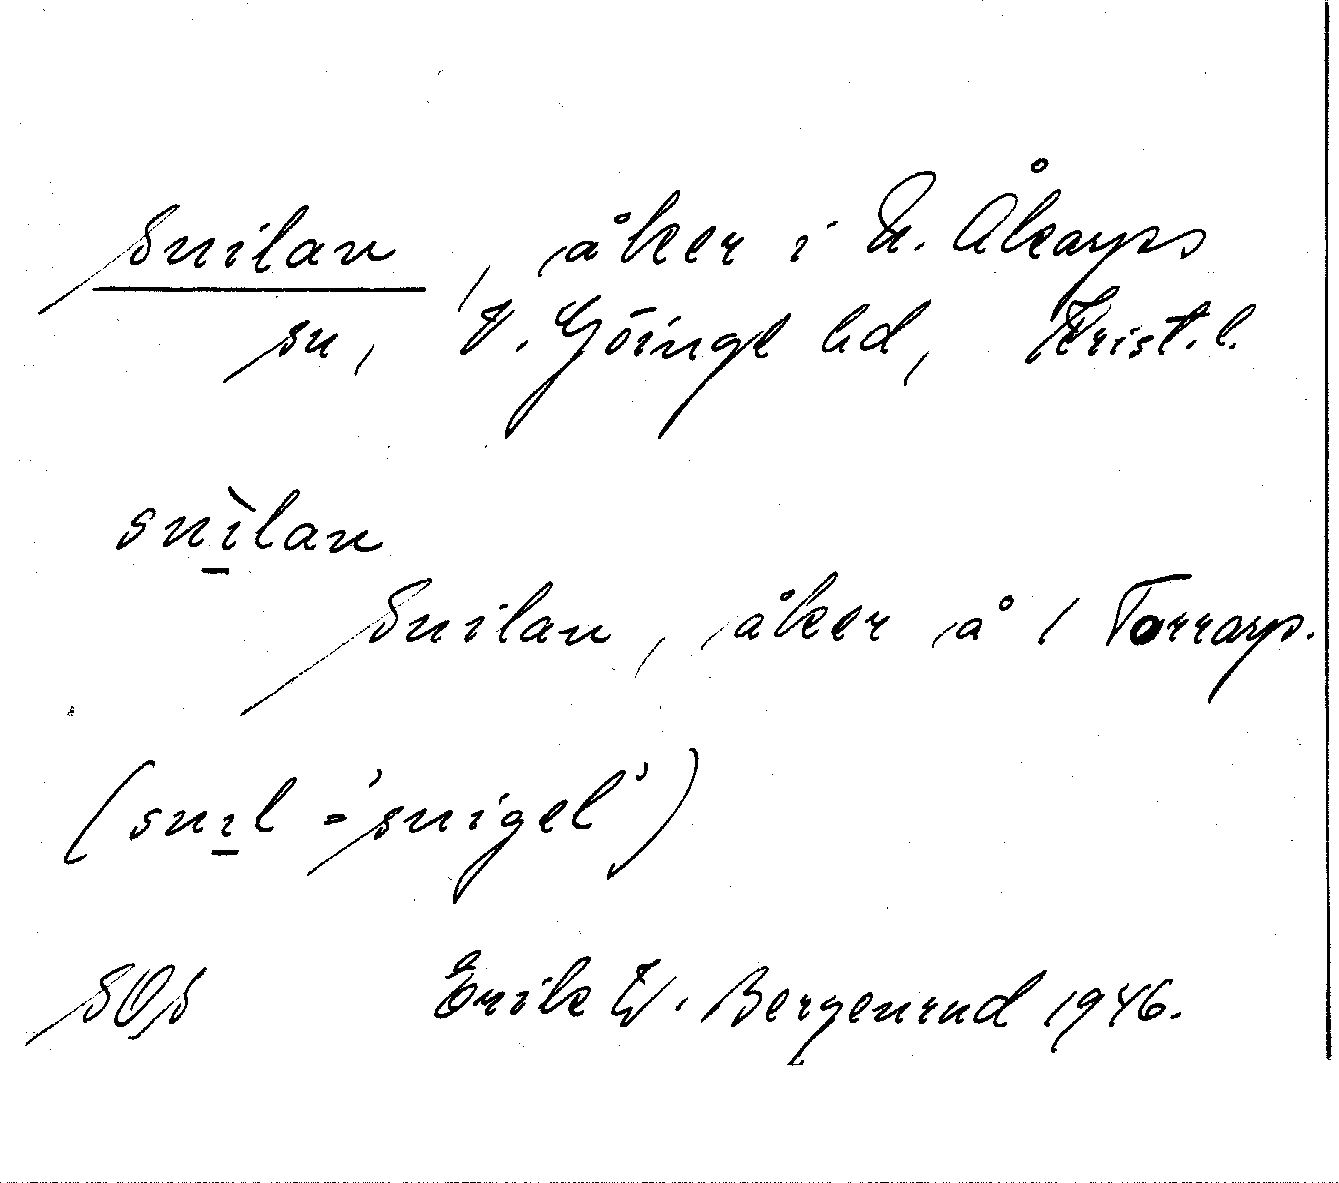 Snilan, åker i N. Åkarps
sn, V. Göinge hd, Krist. l.
snìlan
Snilan, åker å 1 Torrarp.
(snil = 'snigel')
SOS Erik W. Bergenrud 1946.